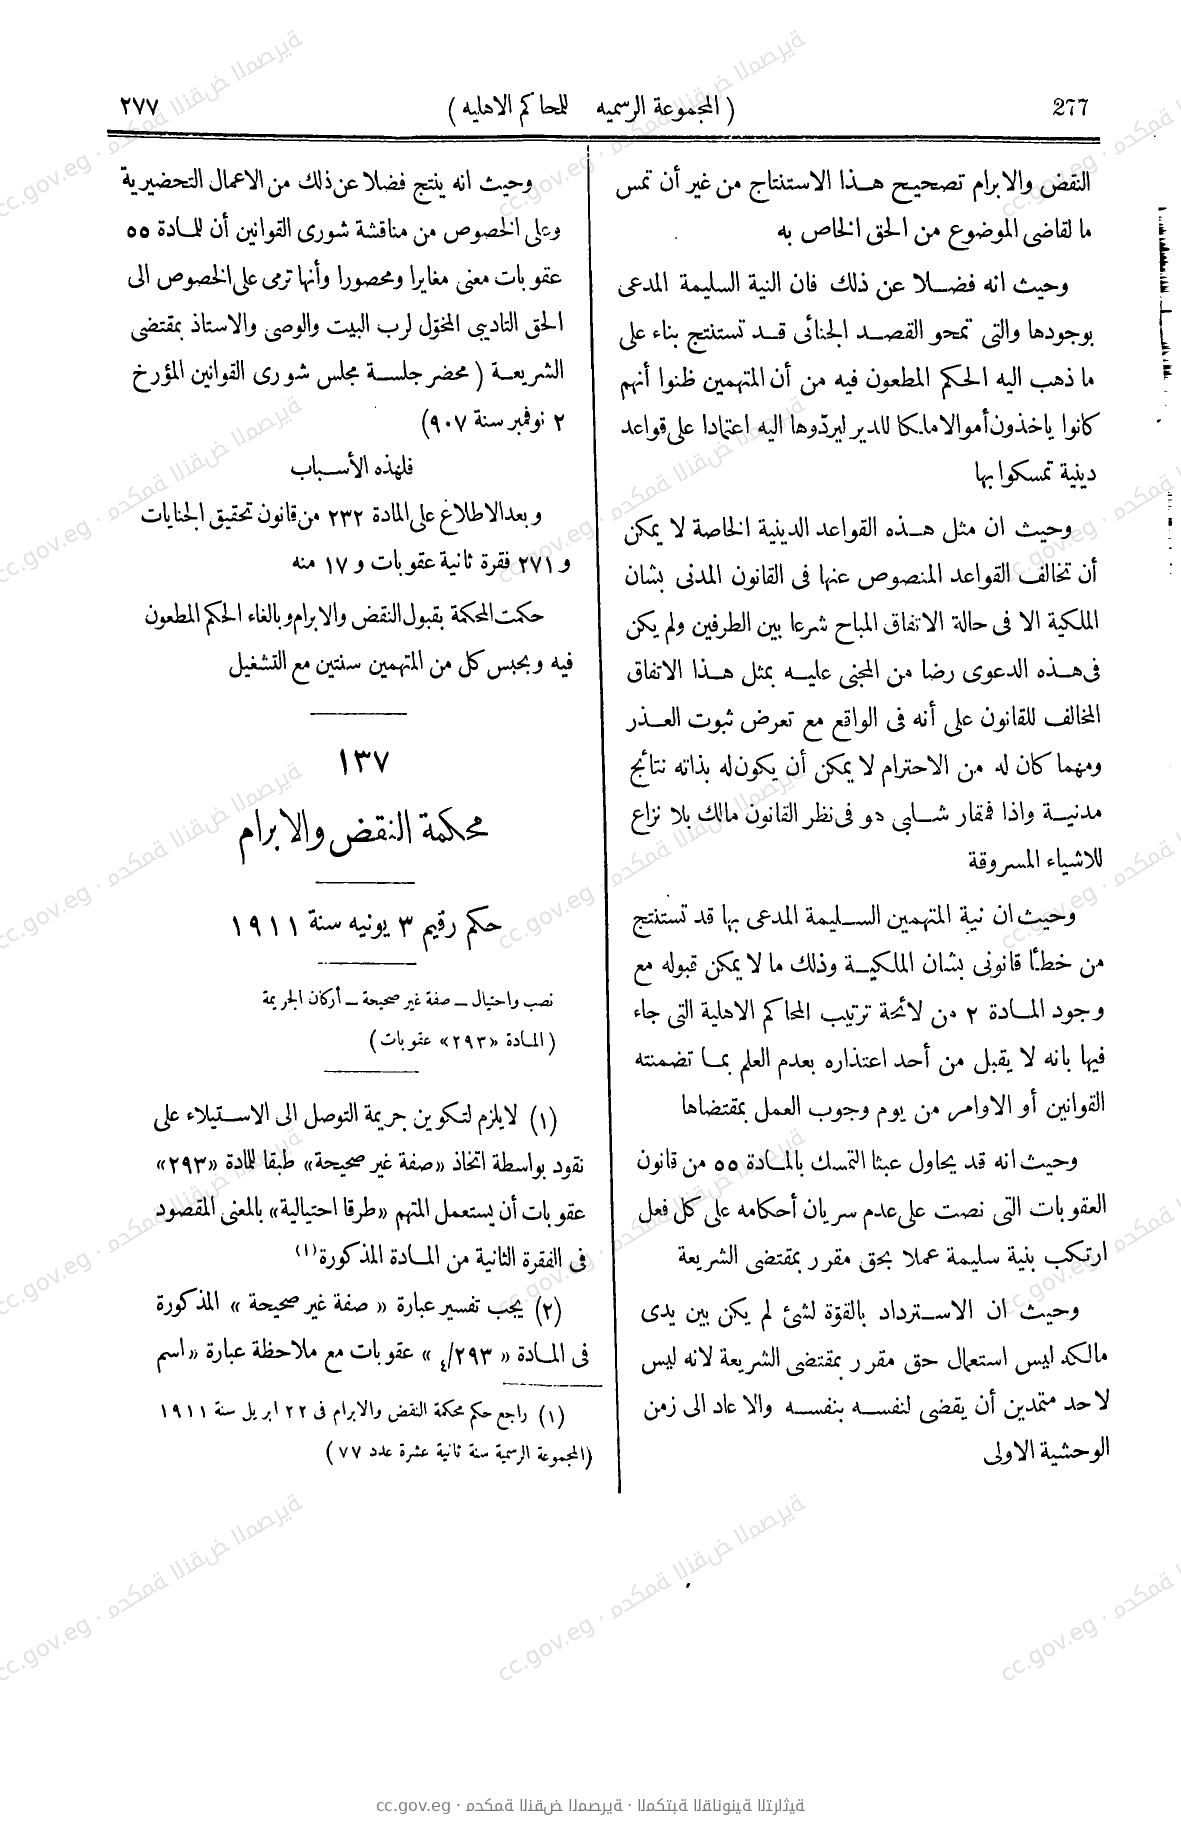 277
( المجموعة الرسميه للمحاكم الاهليه )
٢٧٧
النقض والابرام تصحيح هذا الاستنتاج من غير أن تمس
ما لقاضى الموضوع من الحق الخاص به
وحيث انه فضلا عن ذلك فان النية السليمة المدعى
بوجودها والتى تمحو القصد الجنائى قد تستنتج بناء على
ما ذهب اليه الحكم المطعون فيه من أن المتهمين ظنوا أنهم
كانوا ياخذون أموالا ملكا للدير ليردّوها اليه اعتمادا على قواعد
دينية تمسكوا بها
وحيث ان مثل هذه القواعد الدينية الخاصة لا يمكن
أن تخالف القواعد المنصوص عنها فى القانون المدنى بشان
الملكية الا فى حالة الاتفاق المباح شرعا بين الطرفين ولم يكن
فى هذه الدعوى رضا من المجنى عليه بمثل هذا الاتفاق
المخالف للقانون على أنه فى الواقع مع تعرض ثبوت العذر
ومهما كان له من الاحترام لا يمكن أن يكون له بذاته نتائج
مدنية واذا فمقار شلبى هو فى نظر القانون مالك بلا نزاع
للاشياء المسروقة
وحيث ان نية المتهمين السليمة المدعى بها قد تستنتج
من خطئا قانونى بشان الملكية وذلك ما لا يمكن قبوله مع
وجود المادة ٢ من لائحة ترتيب المحاكم الاهلية التى جاء
فيها بانه لا يقبل من أحد اعتذاره بعدم العلم بما تضمنته
القوانين أو الاوامر من يوم وجوب العمل بمقتضاها
وحيث انه قد يحاول عبثا التمسك بالمادة ٥٥ من قانون
العقوبات التى نصت على عدم سريان أحكامه على كل فعل
ارتكب بنية سليمة عملا بحق مقرر بمقتضى الشريعة
وحيث ان الاسترداد بالقوّة لشئ لم يكن بين يدى
مالكه ليس استعمال حق مقرر بمقتضى الشريعة لانه ليس
لاحد متمدين أن يقضى لنفسه بنفسه والا عاد الى زمن
الوحشية الاولى
وحيث انه ينتج فضلا عن ذلك من الاعمال التحضيرية
وعلى الخصوص من مناقشة شورى القوانين أن للمادة ٥٥
عقوبات معنى مغايرا ومحصورا وأنها ترمى على الخصوص الى
الحق التاديبى المخوّل لرب البيت والوصى والاستاذ بمقتضى
الشريعة ( محضر جلسة مجلس شورى القوانين المؤرخ
٢ نوفمبر سنة ٩٠٧)
فلهذه الأسباب
وبعد الاطلاع على المادة ٢٣٢ من قانون تحقيق الجنايات
و ٢٧١ فقرة ثانية عقوبات و ١٧ منه
حكمت المحكمة بقبول النقض والابرام وبالغاء الحكم المطعون
فيه وبحبس كل من المتهمين سنتين مع التشغيل
١٣٧
محكمة النقض والابرام
حكم رقيم ٣ يونيه سنة ١٩١١
نصب واحتيال ـ صفة غير صحيحة ـ أركان الجريمة
( المادة «٢٩٣» عقوبات )
(١) لا يلزم لتكوين جريمة التوصل الى الاستيلاء على
نقود بواسطة اتخاذ «صفة غير صحيحة» طبقا للمادة «٢٩٣»
عقوبات أن يستعمل المتهم «طرقا احتيالية» بالمعنى المقصود
فى الفقرة الثانية من المادة المذكورة(١)
(٢) يجب تفسير عبارة « صفة غير صحيحة » المذكورة
فى المادة « ٢٩٣/٤ » عقوبات مع ملاحظة عبارة « اسم
(١) راجع حكم محكمة النقض والابرام فى ٢٢ ابريل سنة ١٩١١
(المجموعة الرسمية سنة ثانية عشرة عدد ٧٧ )
cc.gov.eg · محكمة النقض المصرية · المكتبة القانونية التراثية